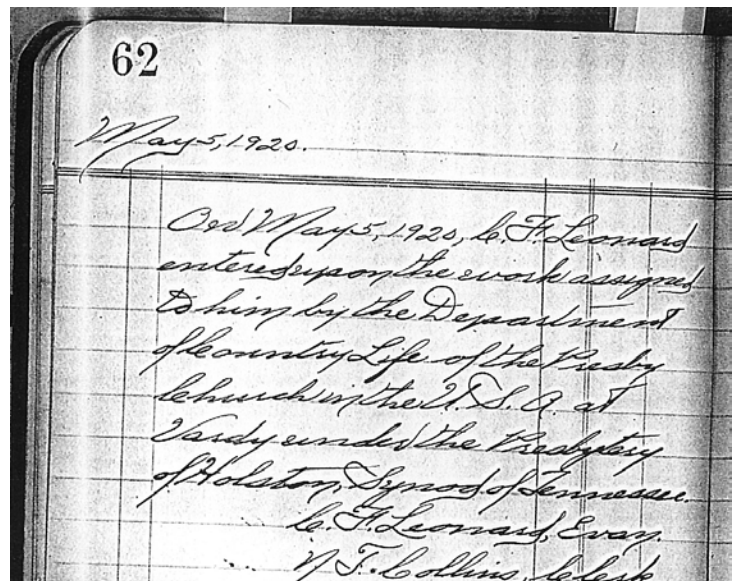 62
May 5, 1920.
On May 5, 1920, C. F. Leonard
entered upon the work assigned
to him by the Department
of Country Life of the Presby
Church in the U. S. A. at
Vardy under the Presbytery
of Holston, Synod of Tennessee.
C. F. Leonard, Evan.
N. T. Collins, Clerk